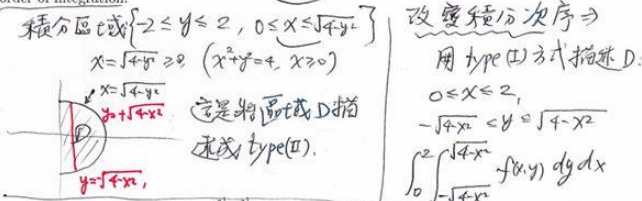 order of integration.
積分區域{-2 ≤ y ≤ 2, 0 ≤ x ≤ √4-y²}
x=√4-y² ≥ 0 (x²+y²=4, x≥0)
x=√4-y²
y=+√4-x²
D
y=-√4-x²,
這是將區域D描
述成 type(II).
改變積分次序⇒
用 type (I) 方式描述 D:
0≤x≤2,
-√4-x² ≤ y ≤ √4-x²
∫₀² ∫_{-√4-x²}^{√4-x²} f(x,y) dy dx